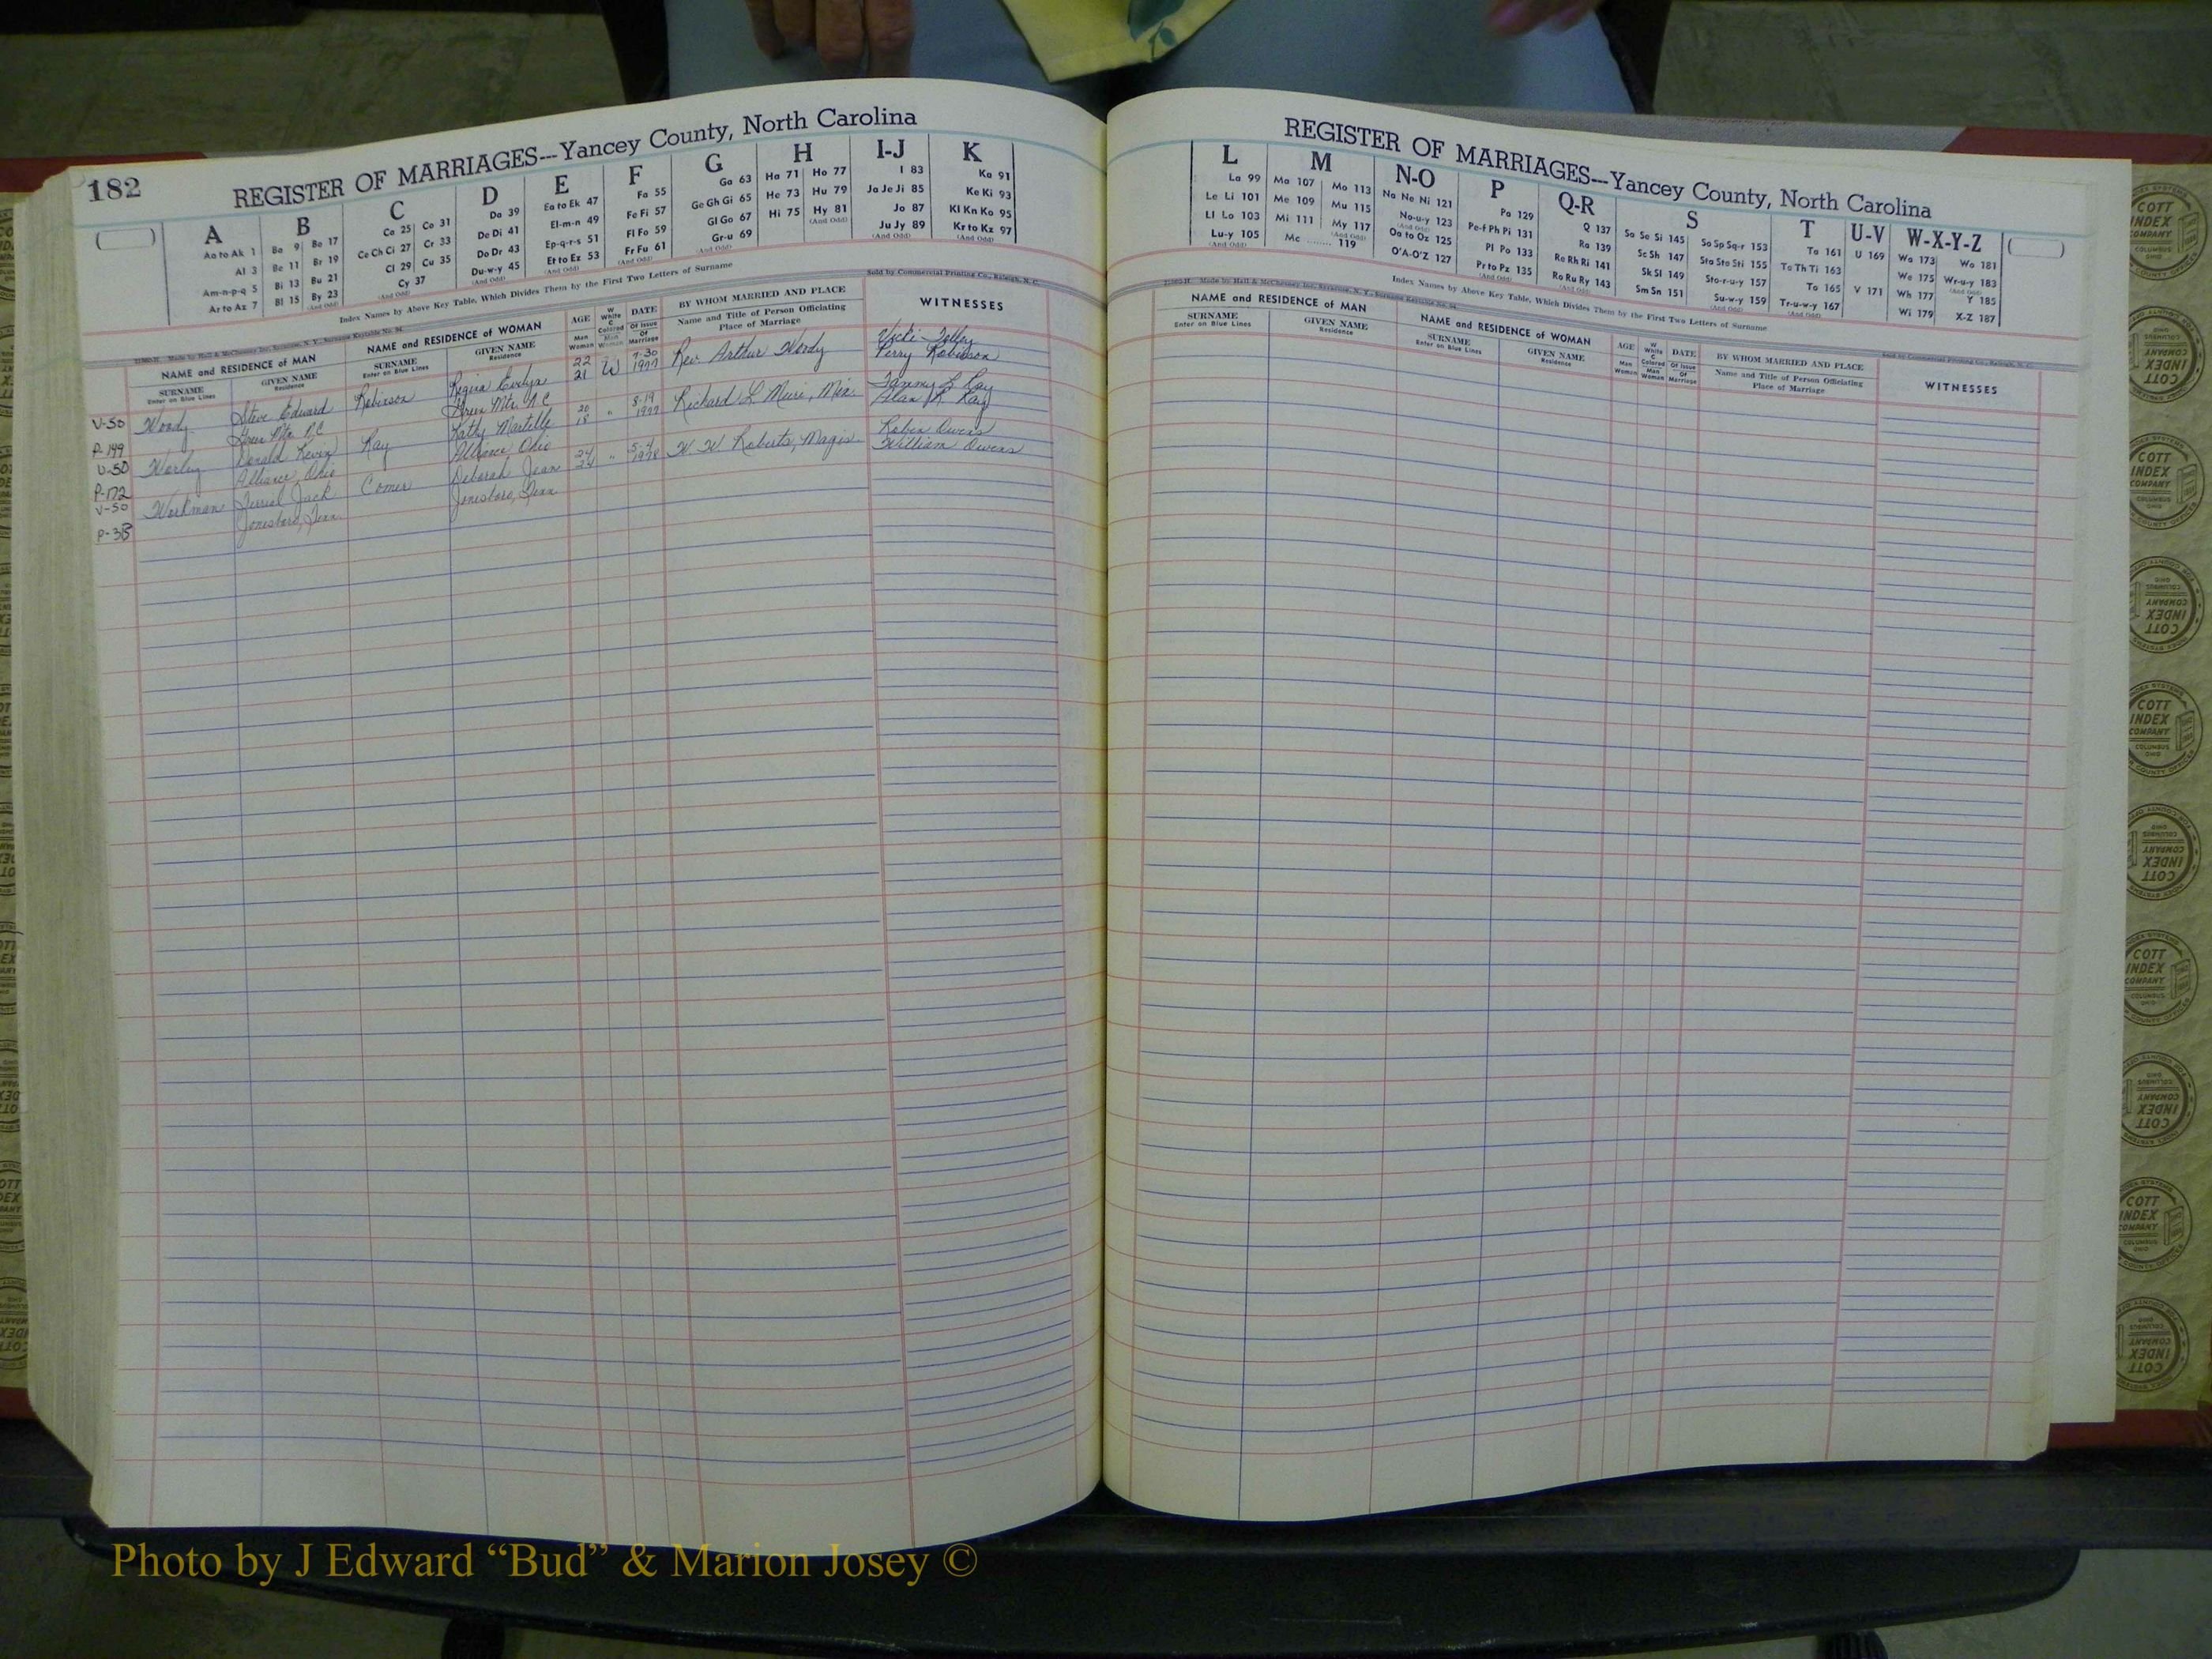 182
REGISTER OF MARRIAGES---Yancey County, North Carolina
A B C D E F G H I-J K
Aa to Ak 1 Ba 9 Bo 17 Ca 25 Co 31 Da 39 Ea to Ek 47 Fa 55 Ga 63 Ha 71 Ho 77 I 83 Ka 91
Al 3 Be 11 Br 19 Ce Ch Ci 27 Cr 33 De Di 41 El-m-n 49 Fe Fi 57 Ge Gh Gi 65 He 73 Hu 79 Ja Je Ji 85 Ke Ki 93
Am-n-p-q 5 Bi 13 Bu 21 Cl 29 Cu 35 Do Dr 43 Ep-q-r-s 51 Fl Fo 59 Gl Go 67 Hi 75 Hy 81 Jo 87 Kl Kn Ko 95
Ar to Az 7 Bl 15 By 23 Cy 37 Du-w-y 45 Et to Ez 53 Fr Fu 61 Gr-u 69 (And Odd) Ju Jy 89 Kr to Kz 97
Index Names by Above Key Table, Which Divides Them by the First Two Letters of Surname
Sold by Commercial Printing Co., Raleigh, N. C.
NAME and RESIDENCE of MAN NAME and RESIDENCE of WOMAN AGE W White C Colored DATE BY WHOM MARRIED AND PLACE WITNESSES
SURNAME Enter on Blue Lines GIVEN NAME Residence SURNAME Enter on Blue Lines GIVEN NAME Residence Man Woman Man Woman Of Issue Of Marriage Name and Title of Person Officiating Place of Marriage
V-50 Woody Steve Edward Robinson Regina Evelyn 22 W 7-30 Rev. Arthur Woody Vicki Tolley
P-149 Green Mtn. N.C Green Mtn. N.C 21 1977 Perry Robinson
V-50 Worley Donald Kevin Ray Kathy Martelle 20 " 8-19 Richard L Muri, Min. Tammy L Ray
P-172 Alliance, Ohio Alliance Ohio 18 1977 Alan K Ray
V-50 Workman Terrial Jack Comer Deborah Jean 24 " 5-4 W. W. Roberts, Magis. Robin Owens
P-313 Jonesboro, Tenn. Jonesboro, Tenn 24 1978 William Owens
REGISTER OF MARRIAGES---Yancey County, North Carolina
L M N-O P Q-R S T U-V W-X-Y-Z
La 99 Ma 107 Mo 113 Na Ne Ni 121 Pa 129 Q 137 Sa Se Si 145 So Sp Sq-r 153 Ta 161 U 169 Wa 173 Wo 181
Le Li 101 Me 109 Mu 115 No-u-y 123 Pe-f Ph Pi 131 Ra 139 Sc Sh 147 Sta Ste Sti 155 Te Th Ti 163 We 175 Wr-u-y 183
Ll Lo 103 Mi 111 My 117 Oa to Oz 125 Pl Po 133 Re Rh Ri 141 Sk Sl 149 Sto-r-u-y 157 To 165 V 171 Wh 177 Y 185
Lu-y 105 Mc ........ 119 O'A-O'Z 127 Pr to Pz 135 Ro Ru Ry 143 Sm Sn 151 Su-w-y 159 Tr-u-w-y 167 Wi 179 X-Z 187
Index Names by Above Key Table, Which Divides Them by the First Two Letters of Surname
NAME and RESIDENCE of MAN NAME and RESIDENCE of WOMAN AGE W White C Colored DATE BY WHOM MARRIED AND PLACE WITNESSES
SURNAME Enter on Blue Lines GIVEN NAME Residence SURNAME Enter on Blue Lines GIVEN NAME Residence Man Woman Man Woman Of Issue Of Marriage Name and Title of Person Officiating Place of Marriage
COTT INDEX COMPANY COLUMBUS OHIO
Photo by J Edward “Bud” & Marion Josey ©